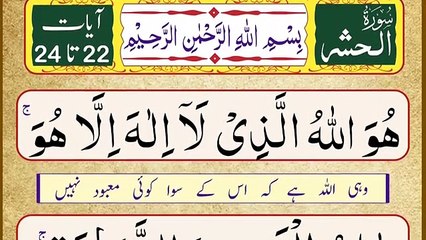 سُوْرَةُ الحشر
بِسْمِ اللهِ الرَّحْمٰنِ الرَّحِيْمِ
آیات 22 تا 24
هُوَ اللهُ الَّذِیْ لَاۤ اِلٰهَ اِلَّا هُوَ ۚ
وہی اللہ ہے کہ اس کے سوا کوئی معبود نہیں